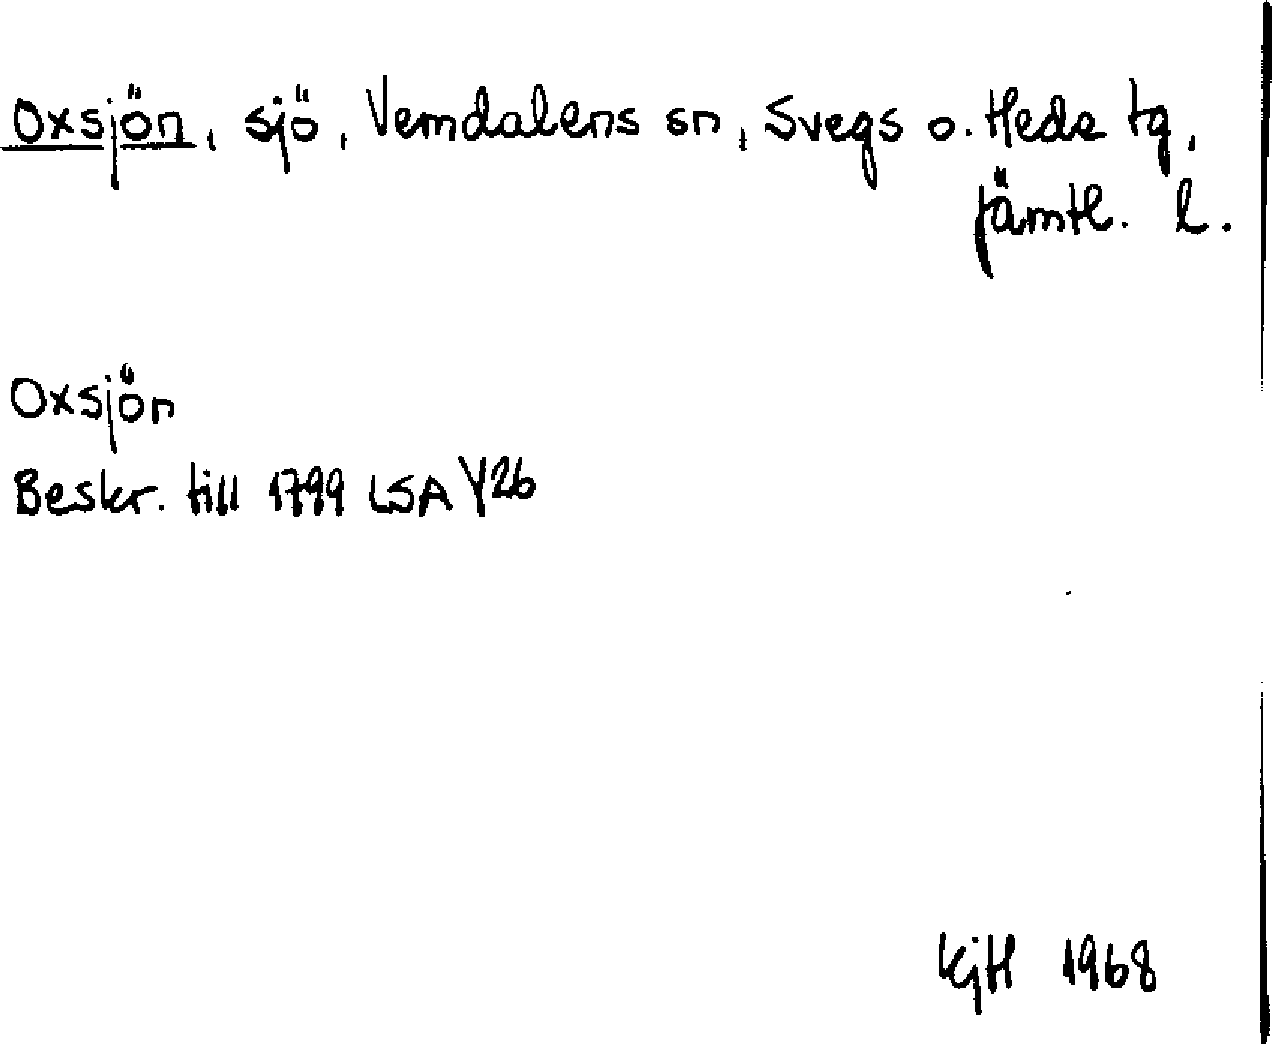 Oxsjön, sjö, Vemdalens sn, Svegs o. Heds tg,
Jämtl. l.
Oxsjön
Beskr. till 1799 LSA Y26
KjH 1968